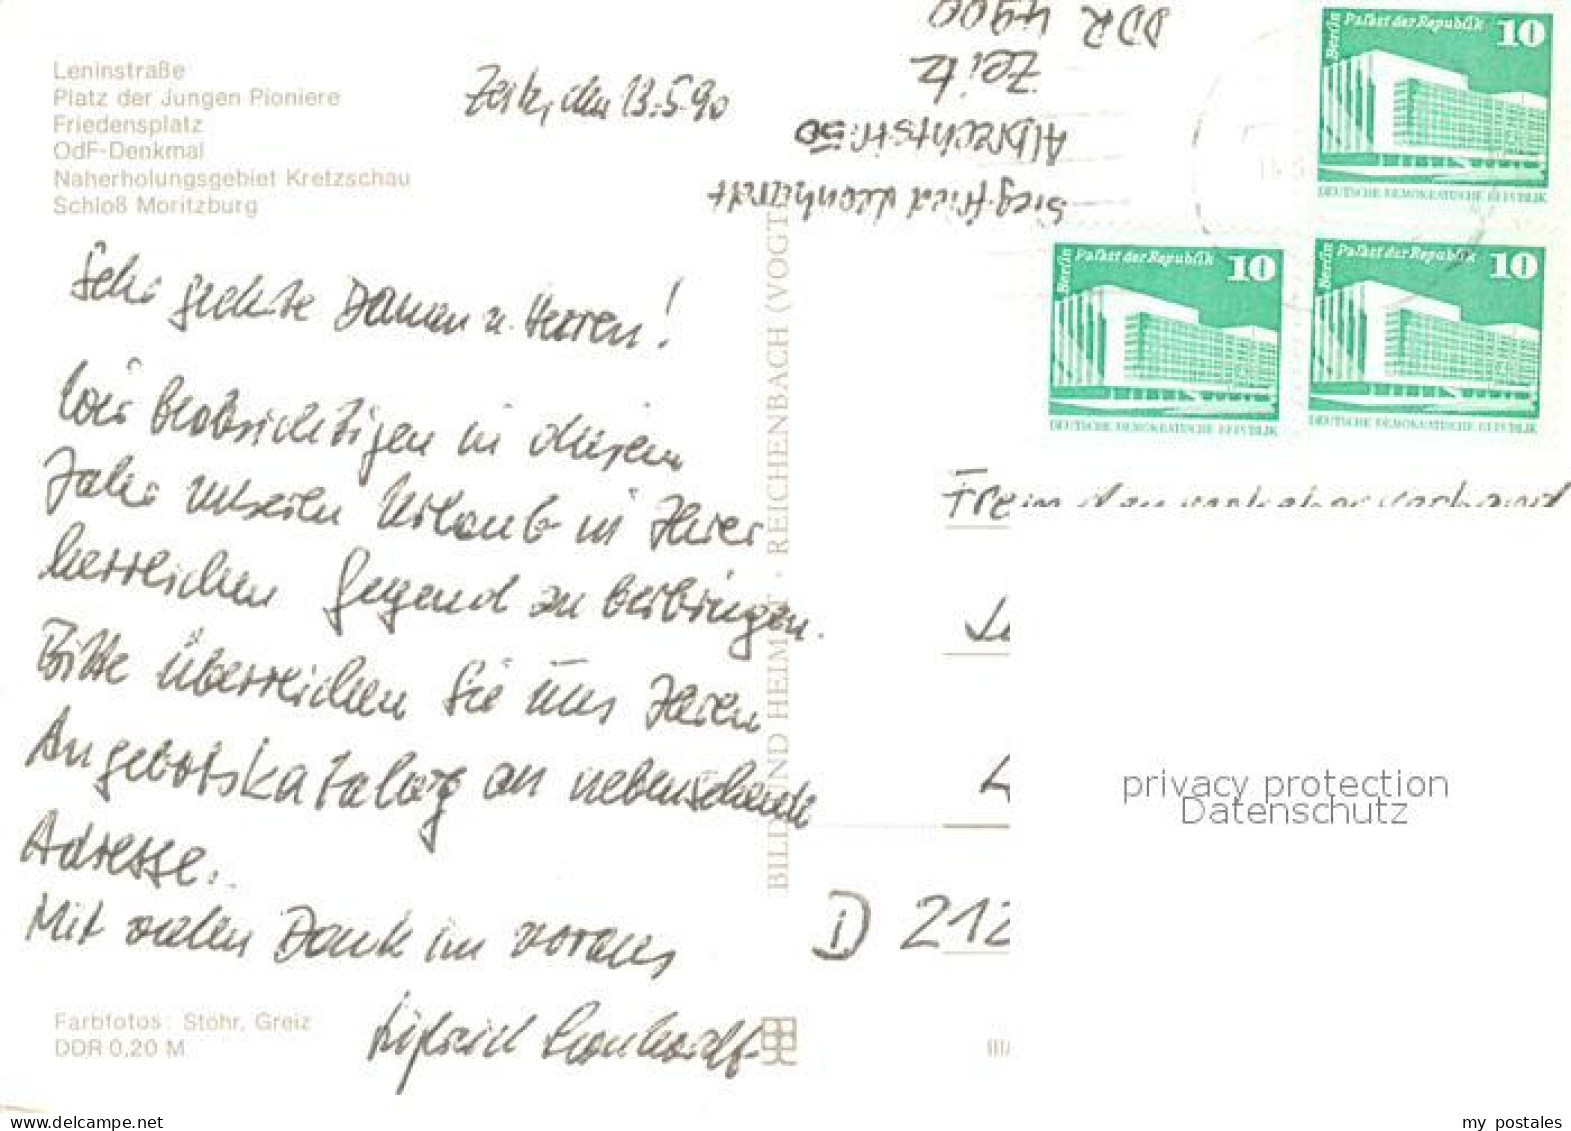 Leninstraße
Platz der Jungen Pioniere
Friedensplatz
OdF-Denkmal
Naherholungsgebiet Kretzschau
Schloß Moritzburg
Zeitz, den 13.5.90
Sehr geehrte Damen u. Herren!
Wir beabsichtigen in diesem
Jahr unseren Urlaub in Ihrer
herrlichen Gegend zu verbringen.
Bitte überreichen Sie uns Ihren
Angebotskatalog an nebenstehende
Adresse.
Mit vielen Dank im voraus
Siegfried Leonhardt
Farbfotos: Stöhr, Greiz
DDR 0,20 M
BILD UND HEIMAT · REICHENBACH (VOGTL
Siegfried Leonhardt
Albrechtstr. 50
Zeitz
DDR 4900
Berlin Palast der Republik 10
DEUTSCHE DEMOKRATISCHE REPUBLIK
Berlin Palast der Republik 10
DEUTSCHE DEMOKRATISCHE REPUBLIK
Berlin Palast der Republik 10
DEUTSCHE DEMOKRATISCHE REPUBLIK
Fremdenverkehrsverband
D 212
privacy protection
Datenschutz
www.delcampe.net
my_postales